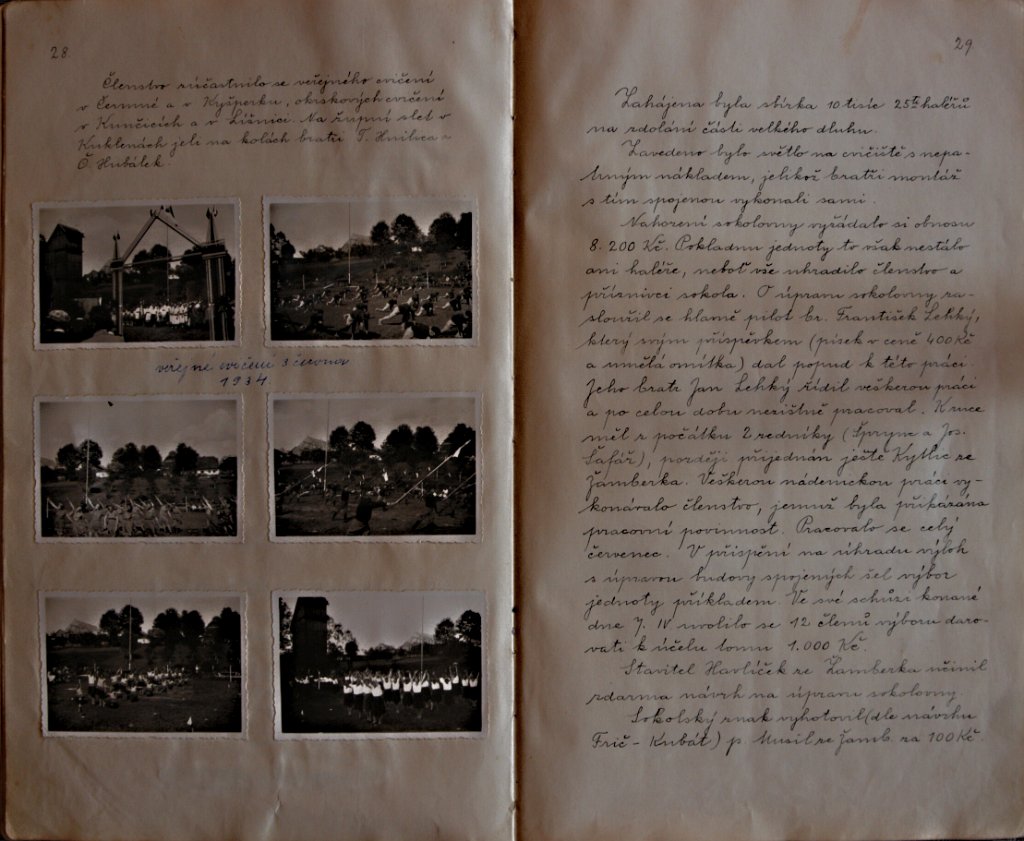 28
Členstvo zúčastnilo se veřejného cvičení
v Čermné a v Kyšperku, okrskových cvičení
v Kunčicích a v Líšnici. Na župní slet v
Kuklenách jeli na kolách bratři T. Hnilica a
Č. Hubálek.
veřejné cvičení 3 června
1934.
29
Zahájena byla sbírka 10 tisíc 25ti haléřů
na zdolání části velkého dluhu.
Zavedeno bylo světlo na cvičiště s nepa-
trným nákladem, jelikož bratři montáž
s tím spojenou vykonali sami.
Nahození sokolovny vyžádalo si obnosu
8.200 Kč. Pokladnu jednoty to však nestálo
ani haléře, neboť vše uhradilo členstvo a
příznivci sokola. O úpravu sokolovny za-
sloužil se hlavně pilot br. František Lehký,
který svým příspěvkem (písek v ceně 400 Kč
a umělá omítka) dal popud k této práci.
Jeho bratr Jan Lehký řídil veškerou práci
a po celou dobu nezištně pracoval. K ruce
měl z počátku 2 zedníky (Špryne a Jos.
Šafář), později přijednán ještě Kytlic ze
Žamberka. Veškerou nádenickou práci vy-
konávalo členstvo, jemuž byla přikázána
pracovní povinnost. Pracovalo se celý
červenec. V přispění na úhradu výloh
s úpravou budovy spojených šel výbor
jednoty příkladem. Ve své schůzi konané
dne 7. IV uvolilo se 12 členů výboru daro-
vati k účelu tomu 1.000 Kč.
Stavitel Havlíček ze Žamberka učinil
zdarma návrh na úpravu sokolovny.
Sokolský znak vyhotovil (dle návrhu
Frič - Kubát) p. Musil ze Žamb. za 100 Kč.